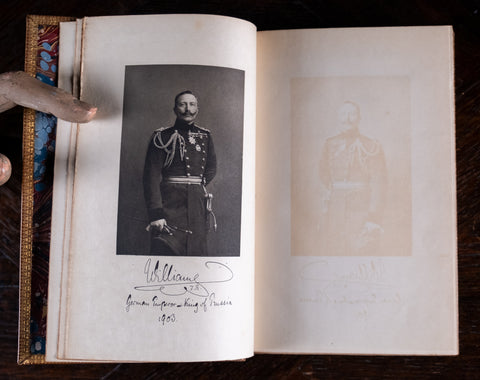 William
German Emperor – King of Prussia
1903.